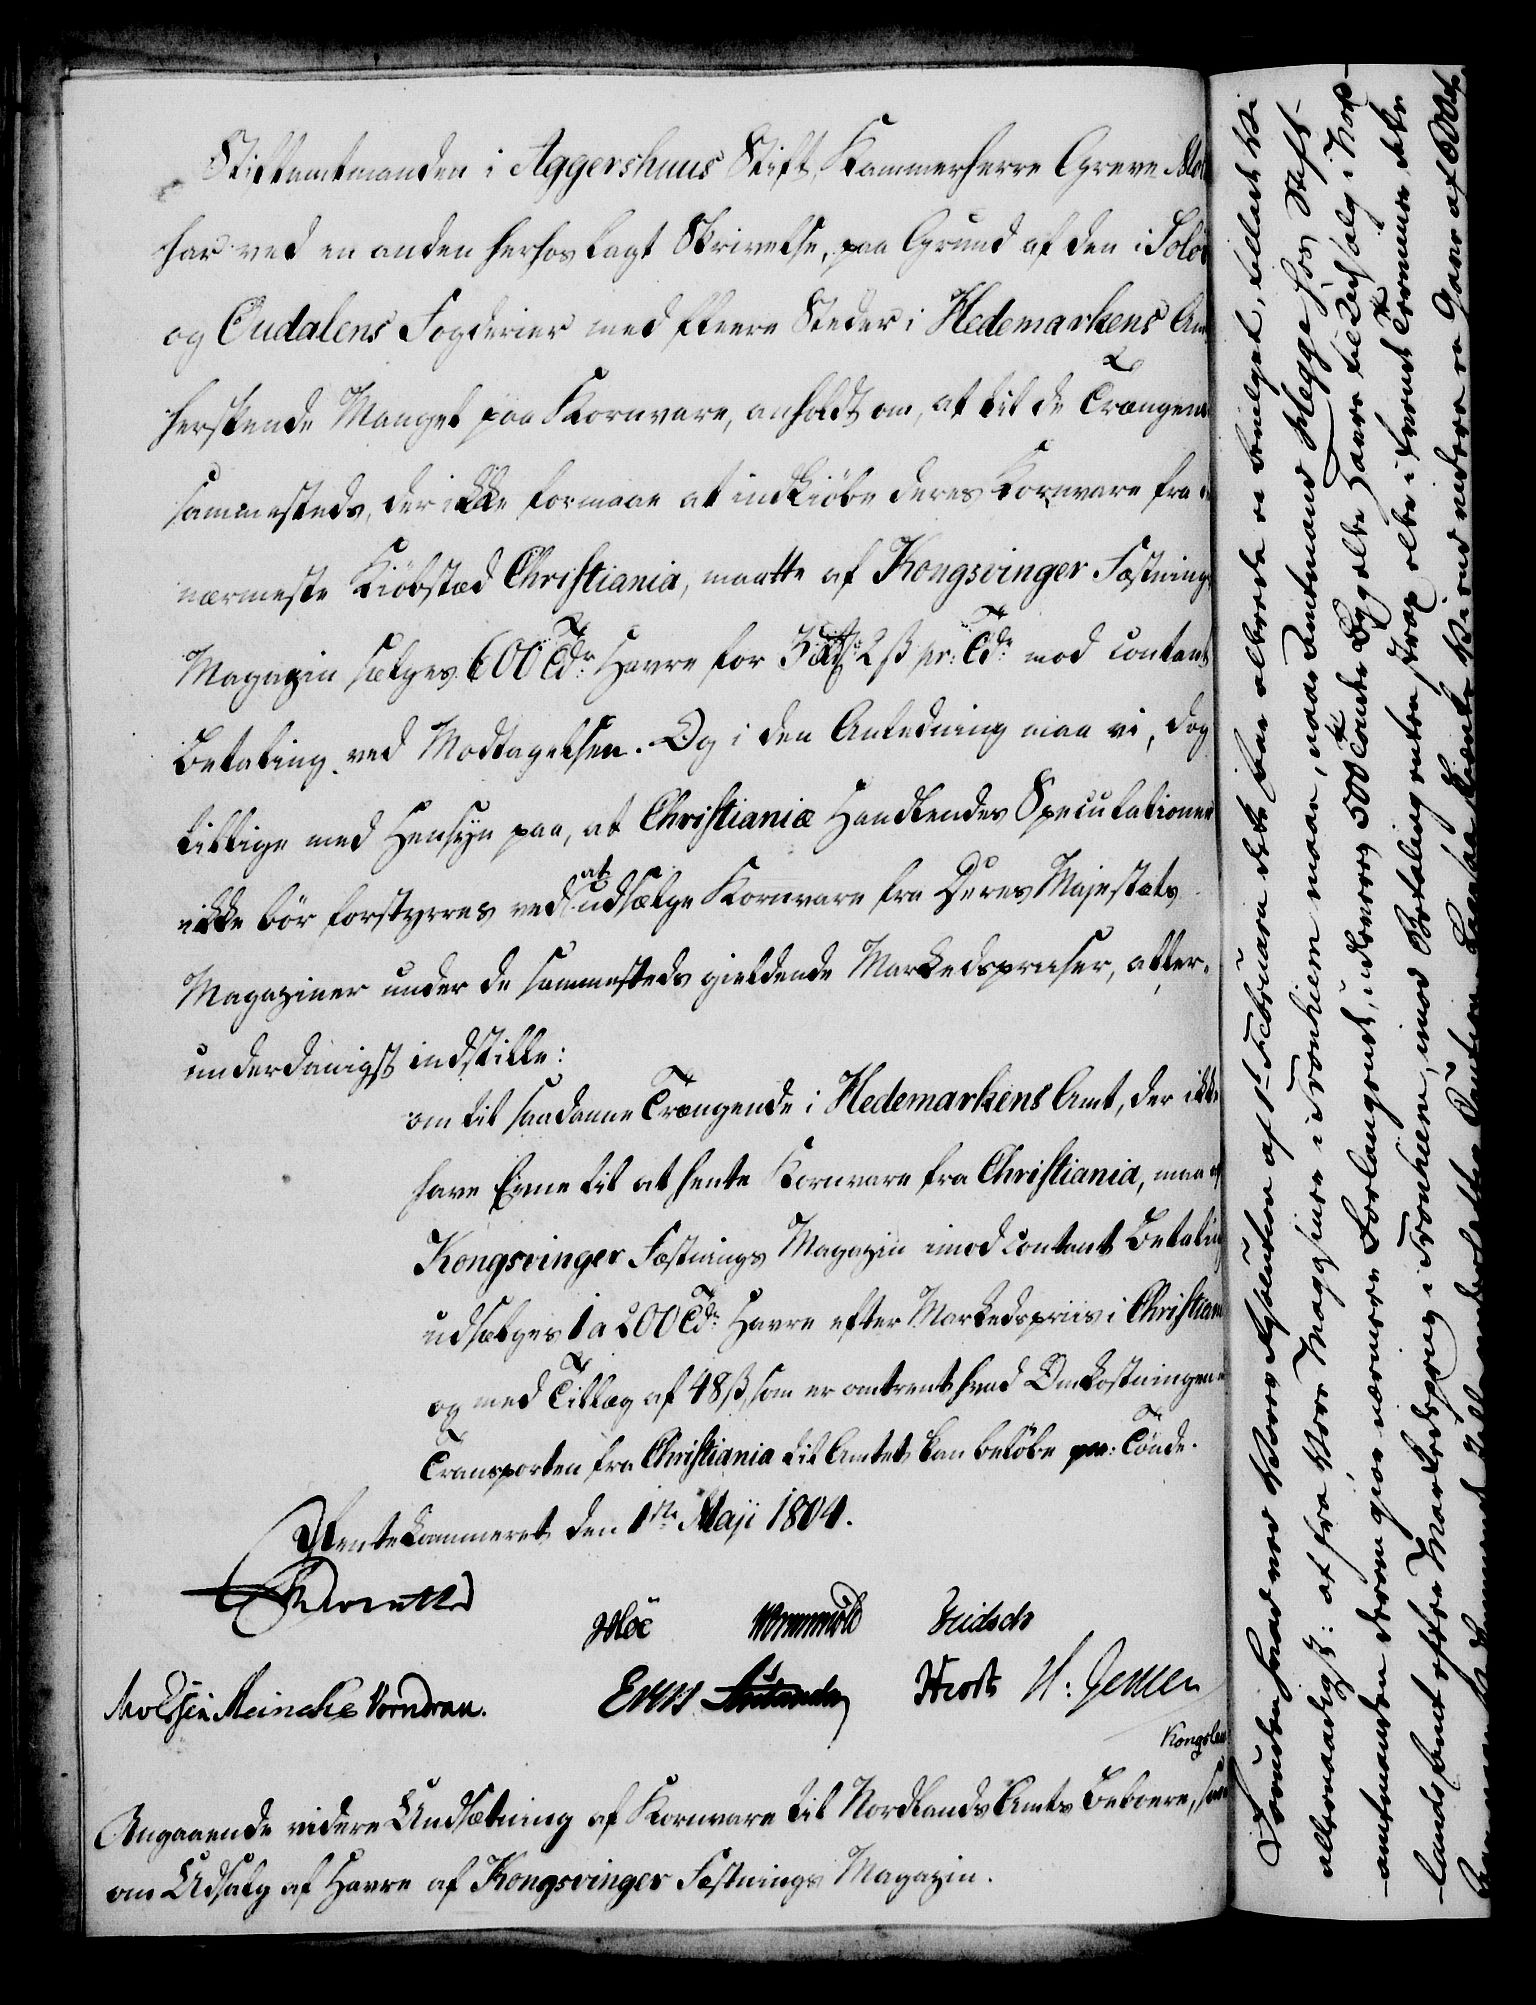 Stiftamtmanden i Aggershuus Stift, Kammerherre Greve
har ved en anden herhos lagt Skrivelse, paa Grund af den i Solør
og Oudalens Fogderier med fleere Steder i Hedemarkens
herskende Mangel paa Kornvare, anholdt om, at til de Trængende
sammesteds, der ikke formaae at indkiöbe deres Kornvare fra
nærmeste Kiöbstæd Christiania, maatte af Kongsvinger Fæstnings
Magazin sælges 600 Tdr Havre for 3 2 ß pr: Tdr mod contant
Betaling ved Modtagelsen. Og i den Anledning maa vi, dog
tillige med Hensyn paa, at Christianiæ Handlendes Speculationer
ikke bör forstyrres ved at udsælge Kornvare fra Deres Majestæts
Magaziner under de sammesteds gieldende Markedspriser, aller-
underdanigst indstille:
om til saadanne Trængende i Hedemarkens Amt, der ikke
have Evne til at hente Kornvare fra Christiania, maa af
Kongsvinger Fæstnings Magazin imod contant Betaling
udsælges 1 a 200 Tdr Havre efter Markedspriis i Christiania
og med Tillæg af 48 ß, som er omtrent hvad Omkostningerne
Transporten fra Christiania til Amtet kan belöbe pr: Tönde.
Rentekammeret den 1ste Maji 1804.
Reventlow
Wormskiold
Meincke Vorndran.
Hiort H: Jensen
Kongslew
Angaaende videre Undsætning af Kornvare til Nordlands Amts Beboere, samt
om Udsalg af Havre af Kongsvinger Fæstnings Magazin.
Foruden hvad ved Vores Resolution af 1ste Februarii dette Aar allerede er bevilget, tillade Vi
allernaadigst: at fra Vore Magasiner i Tronhiem maae, naar Amtmand Hegge hos Stift-
amtmanden derom giør nærmere Forlangende, udleveres 500 Tønder Byg eller Havre til Udsalg i Nord-
lands Amt efter Markedspriis i Tronhiem, imod Betaling enten strax eller i